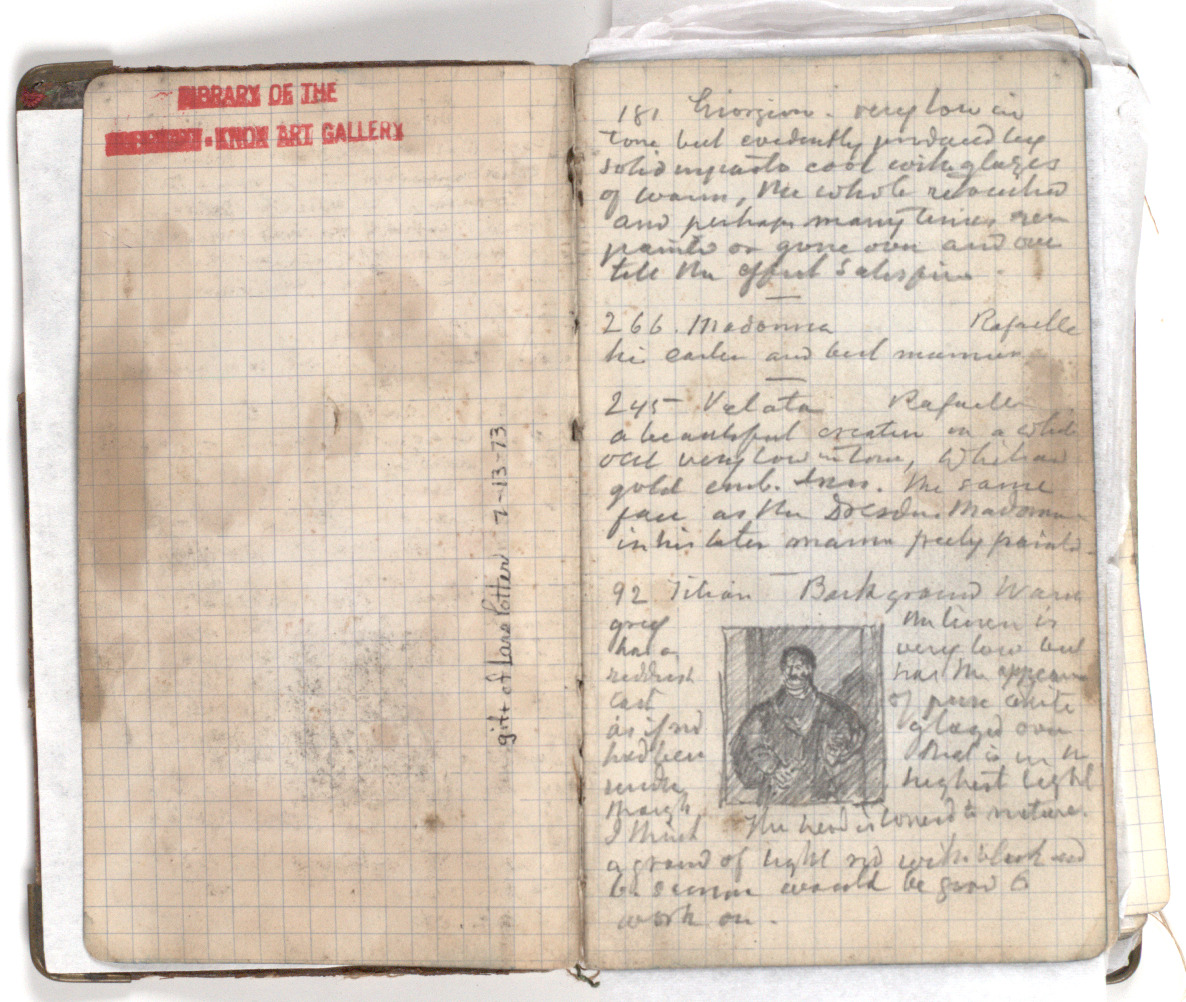 LIBRARY OF THE
KNOX ART GALLERY
gift of Lars Potter 7-13-73
181 Giorgion. very low in
tone but evidently produced by
solid impasto cool with glazes
of warm, the whole retouched
and perhaps many times
painted or gone over and over
till the effect
266. Madonna Rafaelle
his earlier and best manner
245 Velata Rafaelle
a beautiful creation on a whole
very low in tone, White and
gold emb. The same
face as the Dresden Madonna
in his later manner freely painted
92 Titian Background Warm
grey the linen is
has a very low but
reddish has the appearance
cast of pure white
as if red glazed over
had been that is in the
under highest light
though
I think The head is toned to nature.
a ground of light red with black and
would be good to
work on.